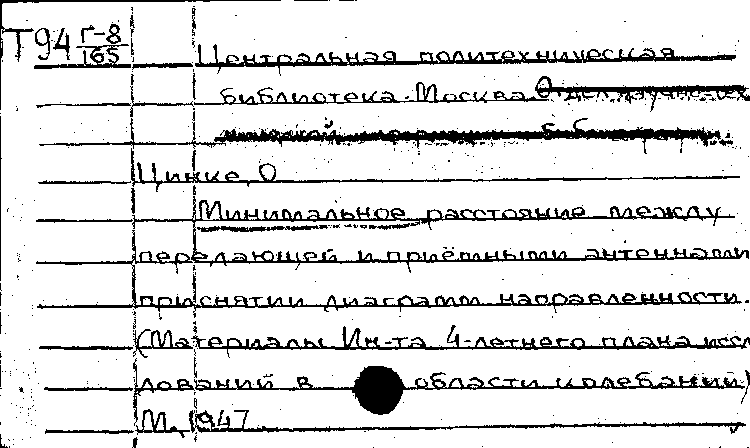 Т94 Г-8/165
Центральная политехническая
библиотека. Москва
Цинке, О
Минимальное расстояние между
передающей и приёмными антеннами
при снятии диаграмм направленности.
(Материалы Ин-та 4-летнего плана иссл
дований в области колебаний)
М., 1947